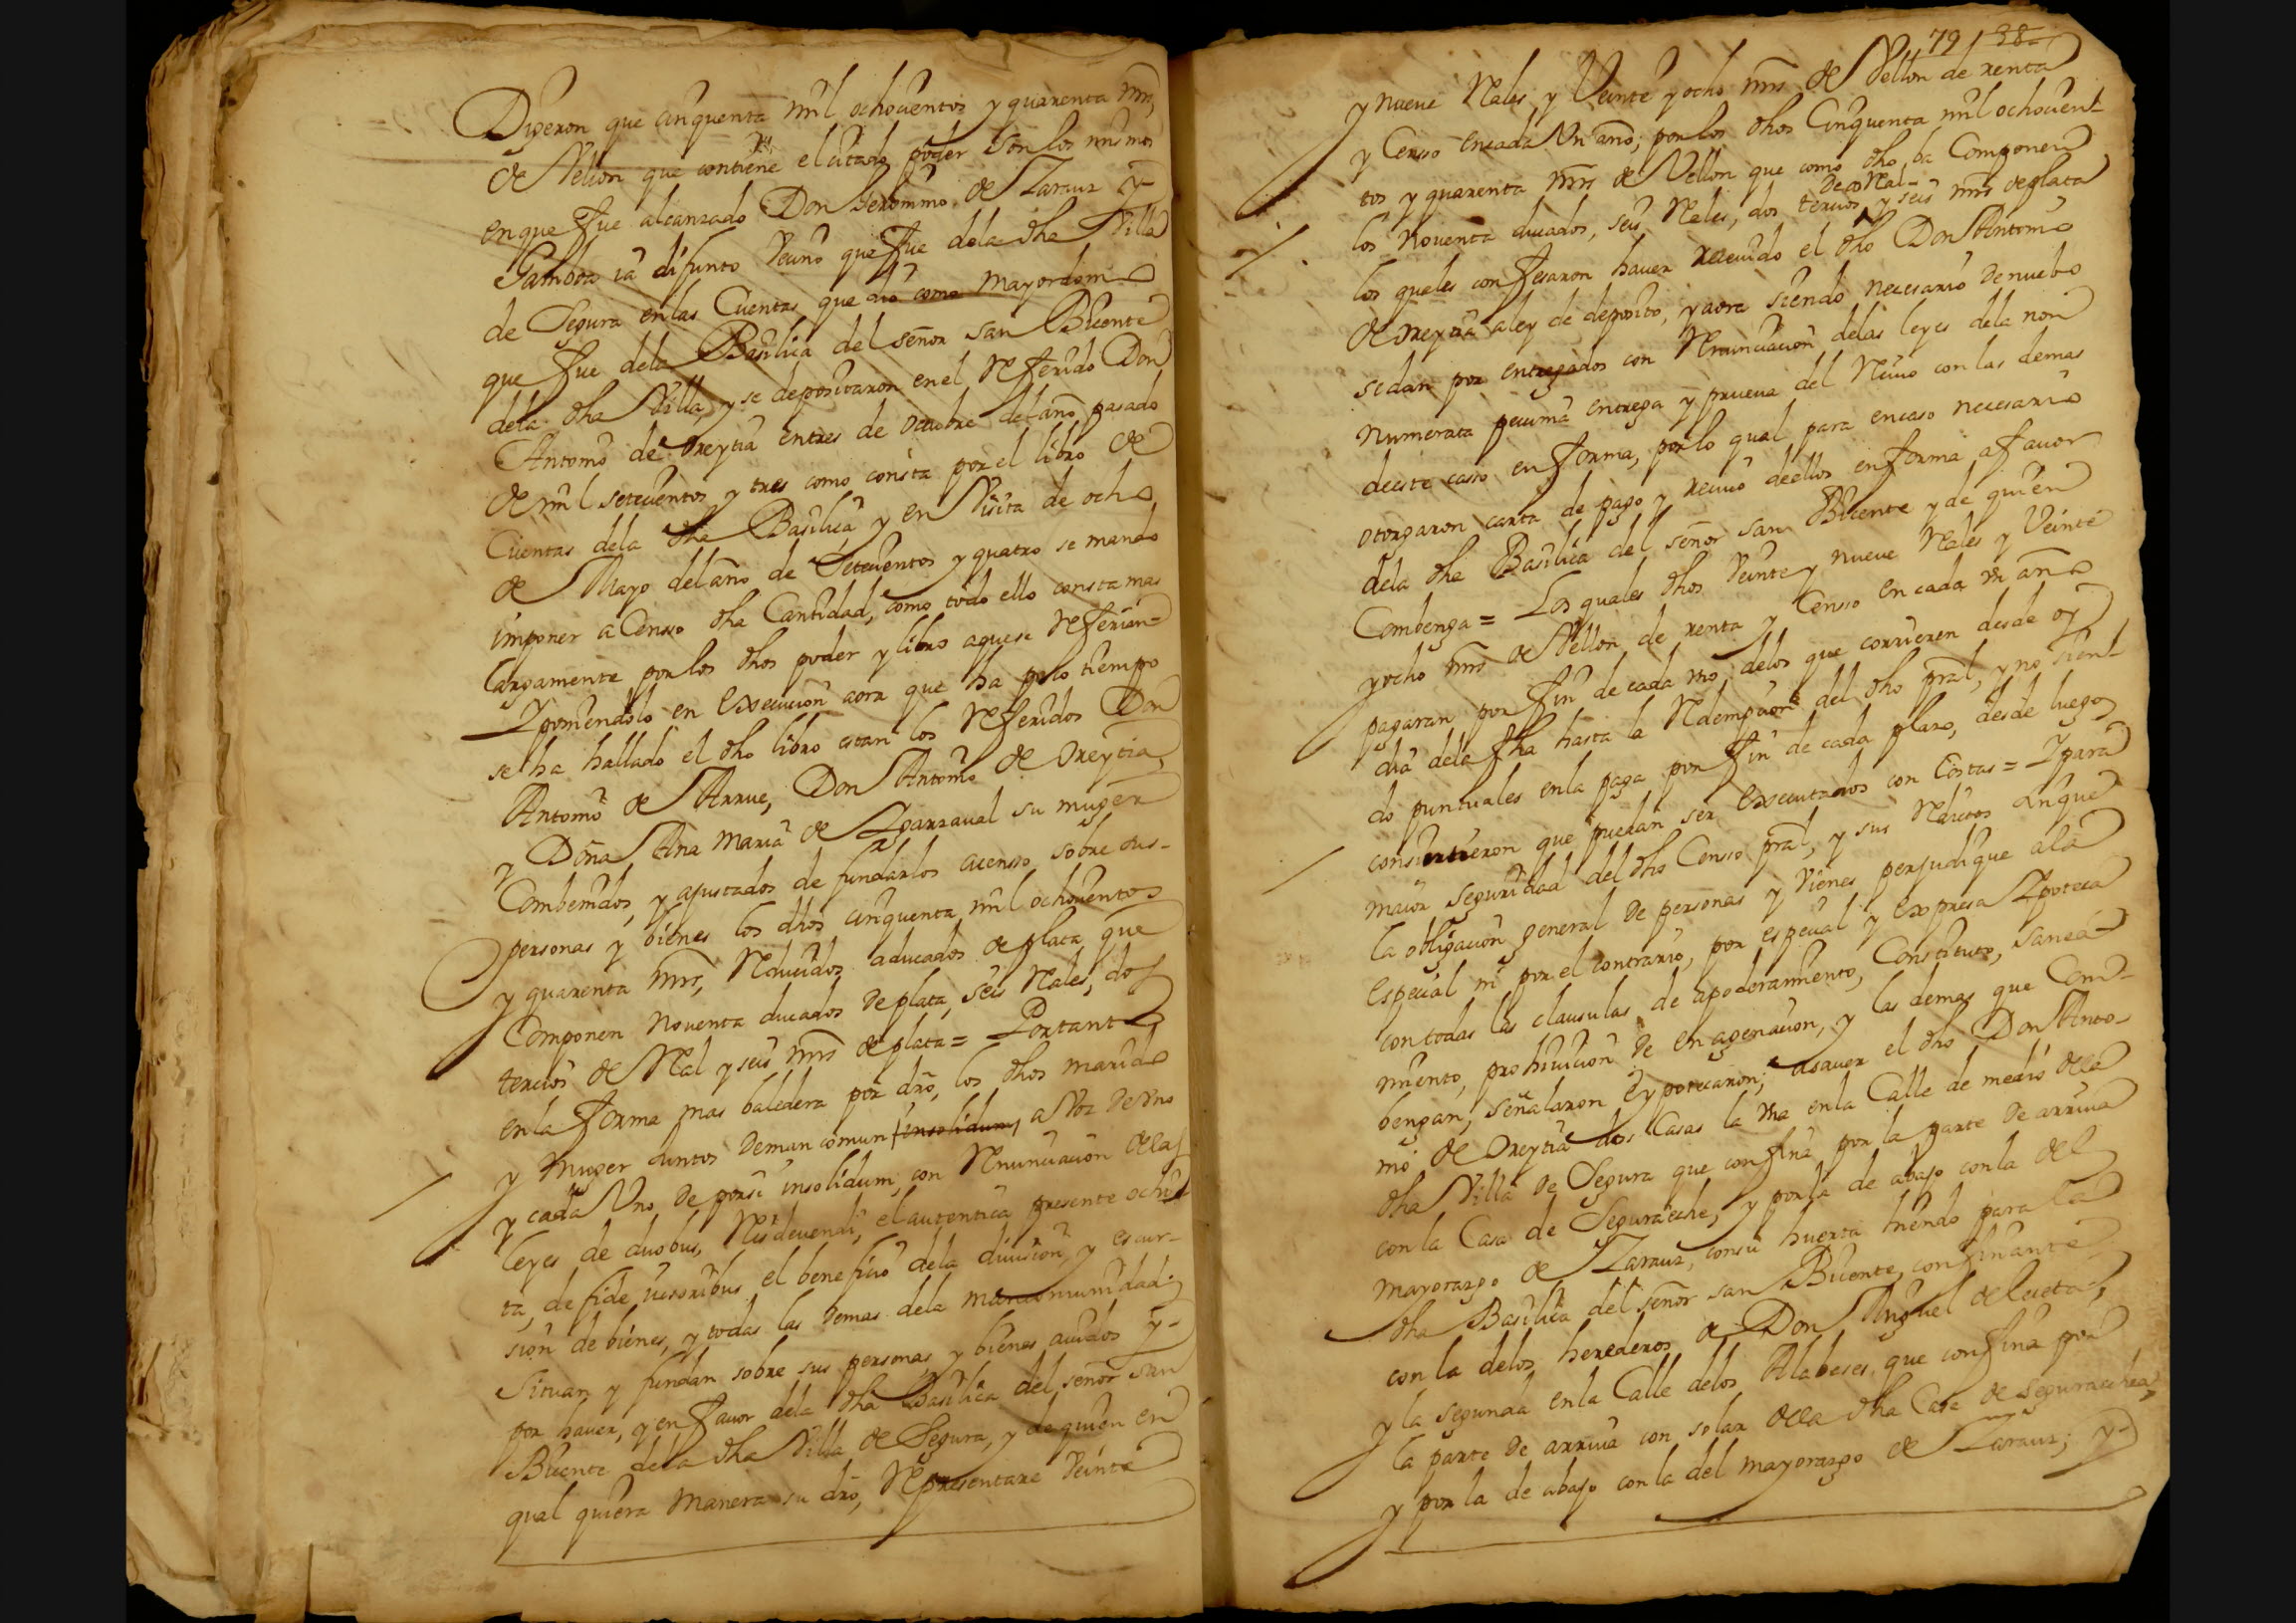 Digeron que cinquenta mil ochocientos y quarenta mrs
de Vellon que contiene el citado poder son los mismos
en que fue alcanzado Don Geronimo de Zarauz y
Gamboa ia difunto Vecino que fue dela dha Villa
de Segura en las Cuentas que dio como mayordomo
que fue dela Basilica del señor san Bicente
dela dha Villa, y se depositaron en el Referido Don
Antonio de Oreytia en tres de octubre del año pasado
de mil setecientos y tres como consta por el libro de
Cuentas dela dha Basilica y en Visita de ocho
de Mayo del año de Setecientos y quatro se mando
imponer a Censso dha Cantidad, como todo ello consta mas
largamente por los dhos poder y libro aque se Referian=
Y poniendolo en Execucion aora que ha poco tiempo
se ha hallado el dho libro estan los Referidos Don
Antonio de Arrue, Don Antonio de Oreytia
y Doña Ana Maria de Ygarzaual su muger
Combenidos, y ajustados de fundarlos acensso sobre sus-
personas y bienes los dhos cinquenta mil ochocientos
y quarenta mrs, Reducidos aducados de plata que
Componen noventa ducados de plata, seis Reales, dos
tercios de Real y seis mrs de plata= Portanto
en la forma mas baledera por dro, los dhos marido
y muger Juntos deman comun insolidum a Voz de Vno
y cada Vno de porsi insolidum, con Renunciacion delas
leyes de duobus, Reis devendi, el autentica presente ochi-
ta, de fide iussoribus el beneficio dela diuision, y escur-
sion de bienes, y todas las demas dela mancomunidad;
Situan y fundan sobre sus personas y bienes auidos y-
por hauer, y en fauor dela dha Basilica del señor san
Bicente dela dha Villa de Segura, y de quien en
qual quiera manera su dro, Representare Veinte
79 38
y nueue Reales y Veinte y ocho mrs de Vellon de renta
y Censso encada Vn año; por los dhos Cinquenta mil ochocien-
tos y quarenta mrs de Vellon que como dho ba Componen
de Real-
los noventa ducados, seis Reales, dos tercios y seis mrs deplata
los quales confesaron hauer Receuido el dho Don Antonio
de oreytia a ley de deposito, y aora siendo necesario denuebo
se dan por entregados con Renunciacion delas leyes dela non
numerata pecunia entrega y prueua del Reciuo con las demas
deeste caso en forma, por lo qual para encaso necesario
otorgaron carta de pago y reciuo deellos en forma a fauor
dela dha Basilica del señor san Bicente y de quien
Combenga = Los quales dhos Veinte y nueue Reales y Veinte
y ocho mrs de Vellon de renta y Censso en cada vn año
pagaran por fin de cada vno delos que corrieren desde oy
dia dela fha hasta la Redempcion del dho pral, y no sien-
do puntuales en la paga por fin de cada plazo, desde luego
consintieron que puedan ser Executados con Costas = Y para
maior seguridad del dho Censo pral, y sus Reditos sin que
la obligacion general de personas y Vienes perjudique ala
especial ni por el contrario, por especial y expresa Ypoteca
con todas las clausulas de apoderamiento, Constituto, sanea-
miento, prohiuicion de enagenacion, y las demas que Com-
bengan, señalaron e ypotecaron; asauer el dho Don Anto-
nio de Oreytia dos Casas la vna en la Calle de medio dela
dha Villa de Segura que confina por la parte de arriua
con la Casa de Seguraeche, y por la de abajo con la del
mayorazgo de Zarauz, con su huerta hiendo para la
dha Basilica del señor san Bicente, confinante
con la delos herederos de Don Miguel de
y la segunda en la Calle delos Alabeses, que confina por
la parte de arriua con solar dela dha Casa de Seguraechea,
y por la de abajo con la del mayorazgo de Zarauz; y-